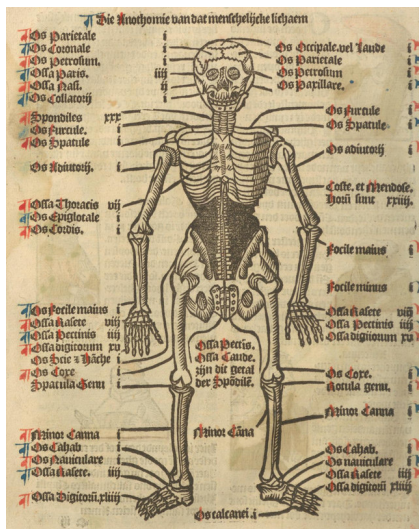 Die Anothomie van dat menschelijcke lichaem
Os Parietale i
Os Coronale i
Os Petrosum. i
Ossa Paris. iiij
Ossa Nasi. ij
Os Collatorij i
Spondiles xxx
Os Furcule. i
Os Spatule i
Os Adiutorij. i
Ossa Thoracis vij
Os Epiglotale i
Os Cordis. i
Os Focile maius i
Ossa Rasete viij
Ossa Pectinis iiij
Ossa digitorum xv
Os Scie z Hãche i
Os Coxe i
Spatula Genu i
Minor Canna i
Os Cahab i
Os Nauiculare i
Ossa Rasete. iiij
Ossa Digitorũ xliiij
Os Occipale. vel Laude i
Os Parietale i
Os Petrosum i
Os Paxillare. i
Os Furcule i
Os Spatule i
Os adiutorij i
Coste. et Mendose.
Horũ sunt xxiiij.
Focile maius i
Focile minus i
Ossa Rasete viij
Ossa Pectinis iiij
Ossa digitorum xv
Ossa Pectis.
Ossa Caude.
zijn dit getal
der Spõdilẽ.
Os Coxe. i
Rotula genu. i
Minor Canna i
Minor Cãna
Os Cahab. i
Os nauiculare i
Ossa Rasete iiij
Ossa digitorũ xliiij
Os calcanei .i